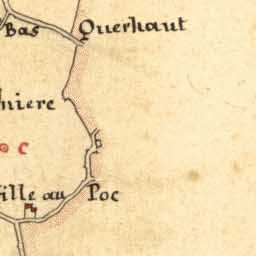 Bas Querhaut
niere
o c
ille au Poc